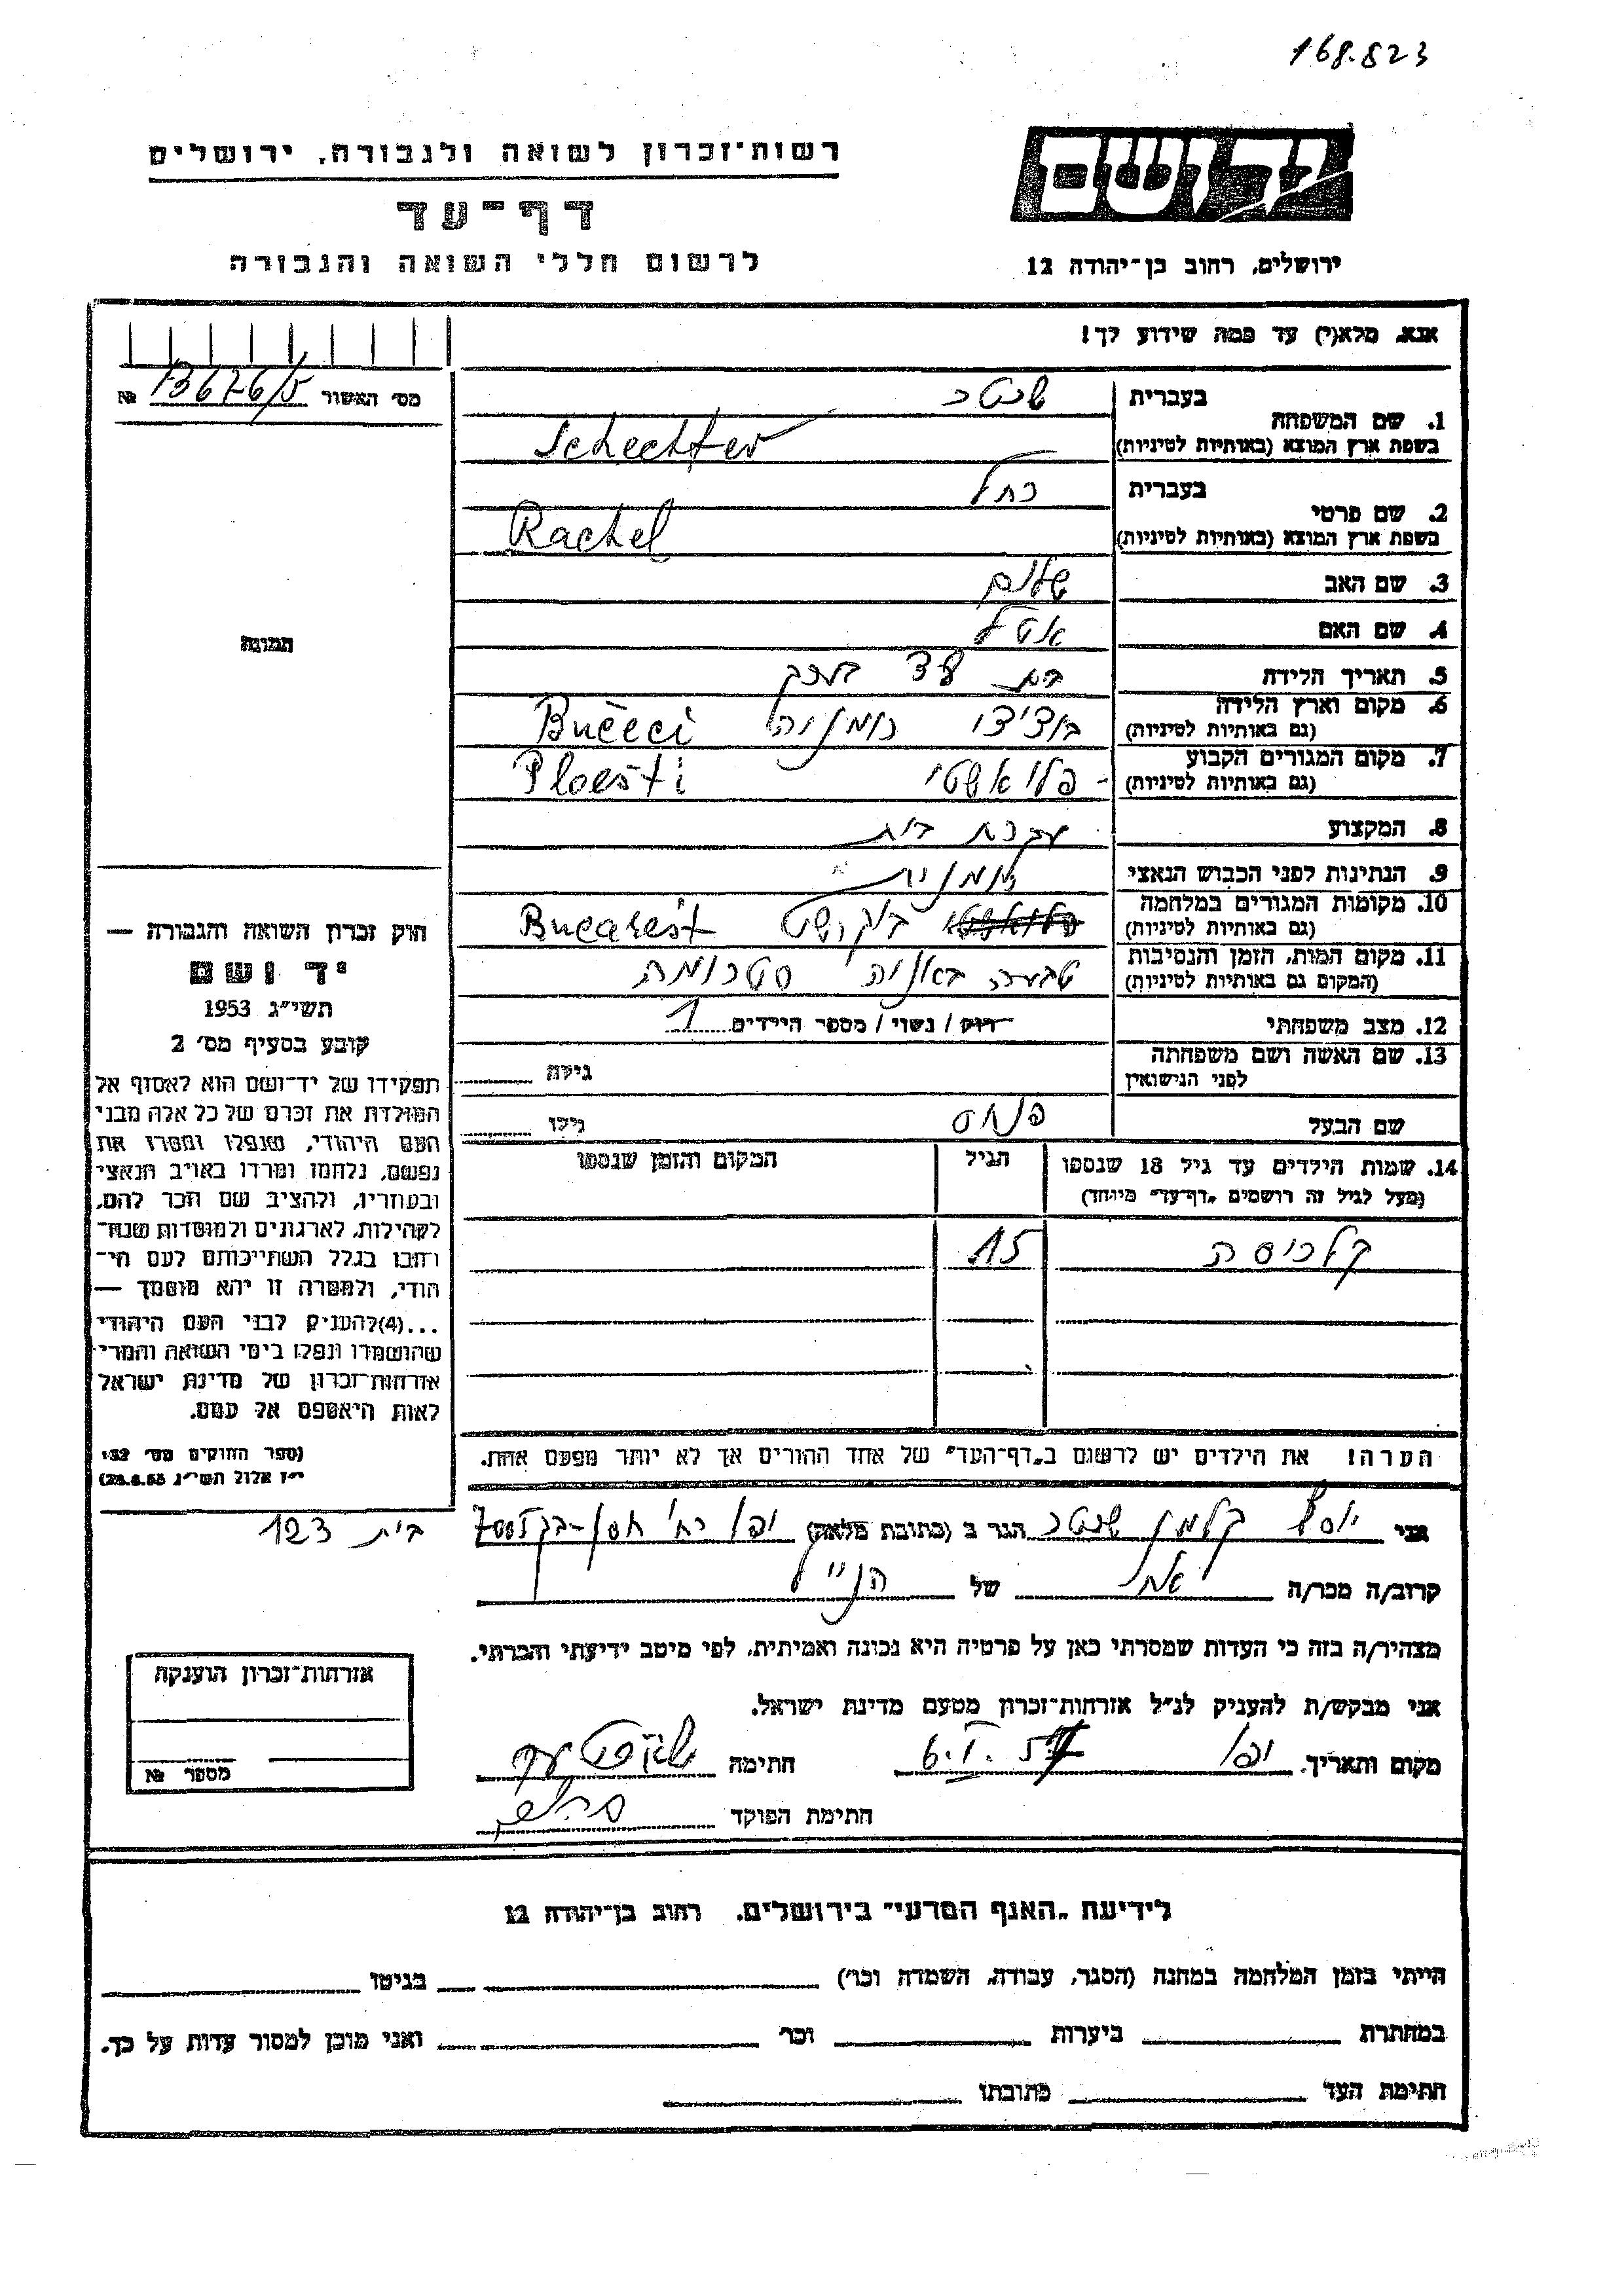 168.823
רשות־זכרון לשואה ולגבורה, ירושלים
דף־עד
לרשום חללי השואה והגבורה
יד ושם
ירושלים, רחוב בן־יהודה 12
אנא, מלא(י) עד כמה שידוע לך!
מס׳ האשור 13676/5 №
תמונה
1. שם המשפחה
בעברית שכטר
בשפת ארץ המוצא (באותיות לטיניות) Schechter
2. שם פרטי
בעברית רחל
בשפת ארץ המוצא (באותיות לטיניות) Rachel
3. שם האב שלום
4. שם האם אטל
5. תאריך הלידה בת
6. מקום וארץ הלידה
(גם באותיות לטיניות) רומניה Bučeci
7. מקום המגורים הקבוע
(גם באותיות לטיניות) פלואשטי Ploesti
8. המקצוע עקרת בית
9. הנתינות לפני הכבוש הנאצי רומנית
10. מקומות המגורים במלחמה
(גם באותיות לטיניות) בוקרשט Bucarest
11. מקום המות, הזמן והנסיבות
(המקום גם באותיות לטיניות) טבעה באניה סטרומה
12. מצב משפחתי רווק / נשוי / מספר הילדים 1
13. שם האשה ושם משפחתה
לפני הנישואין גילה
שם הבעל פנחס גילו
14. שמות הילדים עד גיל 18 שנספו
(מעל לגיל זה רושמים „דף־עד״ מיוחד)
הגיל
המקום והזמן שנספו
קלריסה 15
הערה! את הילדים יש לרשום ב„דף־העד״ של אחד ההורים אך לא יותר מפעם אחת.
חוק זכרון השואה והגבורה —
יד ושם
תשי״ג 1953
קובע בסעיף מס׳ 2
תפקידו של יד־ושם הוא לאסוף אל
המולדת את זכרם של כל אלה מבני
העם היהודי, שנפלו ומסרו את
נפשם, נלחמו ומרדו באויב הנאצי
ובעוזריו, ולהציב שם וזכר להם,
לקהילות, לארגונים ולמוסדות שנח־
רבו בגלל השתייכותם לעם הי־
הודי, ולמטרה זו יהא מוסמך —
...(4)להעניק לבני העם היהודי
שהושמדו ונפלו בימי השואה והמרי
אזרחות־זכרון של מדינת ישראל
לאות היאספם אל עמם.
(ספר החוקים מס׳ 132
י״ז אלול תשי״ג 28.8.53)
אני יוסף קלמן שכטר הגר ב (כתובת מלאה) יפו
בית 123
קרוב/ה מכר/ה אח של הנ״ל
מצהיר/ה בזה כי העדות שמסרתי כאן על פרטיה היא נכונה ואמיתית, לפי מיטב ידיעתי והכרתי.
אני מבקש/ת להעניק לנ״ל אזרחות־זכרון מטעם מדינת ישראל.
מקום ותאריך. יפו חתימה
חתימת הפוקד
אזרחות־זכרון הוענקה
מספר №
לידיעת „האגף המדעי״ בירושלים. רחוב בן־יהודה 12
הייתי בזמן המלחמה במחנה (הסגר, עבודה, השמדה וכו׳) בגיטו
במחתרת ביערות וכו׳ ואני מוכן למסור עדות על כך.
חתימת העד כתובתו